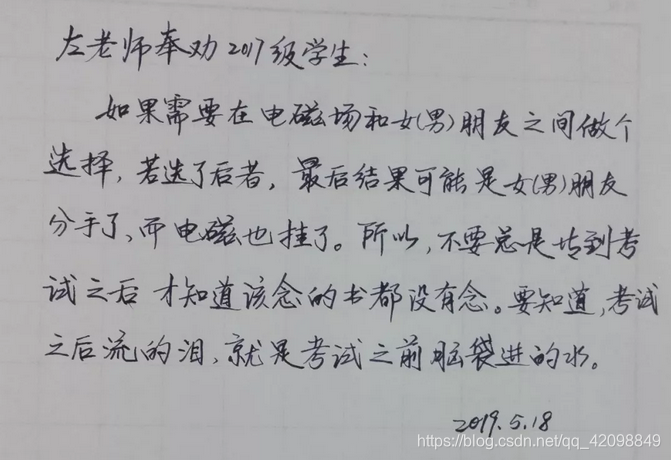 左老师奉劝2017级学生:
如果需要在电磁场和女(男)朋友之间做个
选择,若选了后者,最后结果可能是女(男)朋友
分手了、而电磁也挂了。所以,不要总是等到考
试之后 才知道该念的书都没有念。要知道,考试
之后流的泪,就是考试之前脑袋进的水。
2019.5.18
https://blog.csdn.net/qq_42098849